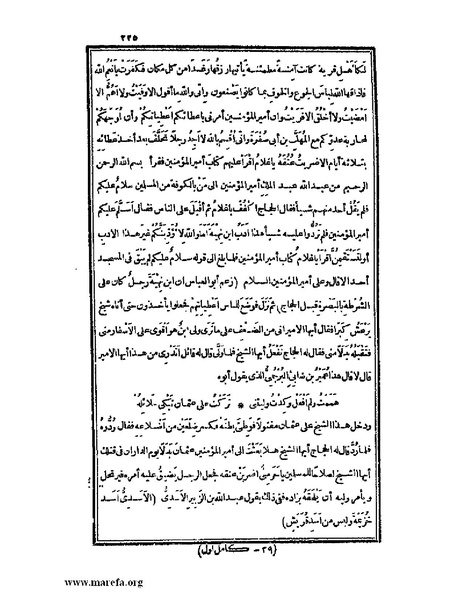 ٢٢٥
لكأهل قرية كانت آمنة مطمئنة يأتيها رزقها رغدا من كل مكان فكفرت بأنعم الله
فأذاقها الله لباس الجوع والخوف بما كانوا يصنعون وانى والله ما أقول الا وفيت ولا أهم الا
أمضيت ولا أخلق الا فريت وان أمير المؤمنين أمرنى باعطائكم أعطياتكم وأن أوجهكم
لمحاربة عدوكم مع المهلب بن أبى صفرة وانى أقسم بالله لا أجد رجلا تخلف بعد أخذ عطائه
بثلاثة أيام الا ضربت عنقه يا غلام اقرأ عليهم كتاب أمير المؤمنين فقرأ بسم الله الرحمن
الرحيم من عبد الله عبد الملك أمير المؤمنين الى من بالكوفة من المسلمين سلام عليكم
فلم يقل أحد منهم شيأ فقال الحجاج اكفف يا غلام ثم أقبل على الناس فقال أسلم عليكم
أمير المؤمنين فلم تردوا عليه شيأ هذا أدب ابن نهية أما والله لأؤدبنكم غير هذا الادب
أو لتستقيمن اقرأ يا غلام كتاب أمير المؤمنين فلما بلغ الى قوله سلام عليكم لم يبق فى المسجد
أحد الا قال وعلى أمير المؤمنين السلام (زعم أبو العباس ان ابن نهية رجل كان على
الشرطة بالبصرة قبل الحجاج) ثم نزل فوضع للناس أعطياتهم فجعلوا يأخذون حتى أتاه شيخ
يرعش كبرا فقال أيها الامير انى من الضعف على ما ترى ولى ابن هو أقوى على الاسفار منى
فتقبله بدلا منى فقال له الحجاج نفعل أيها الشيخ فلما ولى قال له قائل أتدرى من هذا أيها الامير
قال لا قال هذا عمير بن ضابئ البرجمى الذى يقول أبوه
هممت ولم أفعل وكدت وليتنى * تركت على عثمان تبكى حلائله
ودخل هذا الشيخ على عثمان مقتولا فوطئ بطنه فكسر ضلعين من أضلاعه فقال ردوه
فلما رد قال له الحجاج أيها الشيخ هلا بعثت الى أمير المؤمنين عثمان بدلا يوم الدار ان فى قتلك
أيها الشيخ لصلاحا للمسلمين يا حرسى اضربن عنقه فجعل الرجل يضيق عليه أمره فيرتحل
ويأمر وليه أن يلحقه بزاده ففى ذلك يقول عبد الله بن الزبير الاسدى (الاسدى أسد
خزيمة وليس من أسد قريش)
(٢٩ - كامل اول)
www.marefa.org